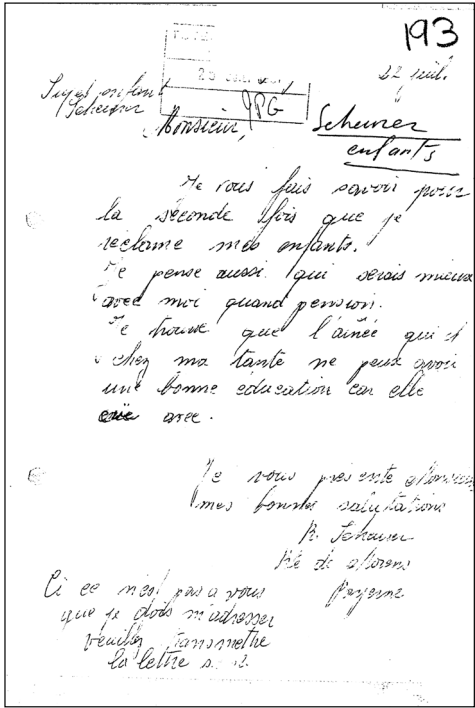 193
22 juil.
Sujet enfant
JPG
Monsieur,
enfants
Je vous fais savoir pour
la seconde fois que je
réclame mes enfants.
Je pense aussi qui serais mieux
avec moi quand pension.
Je trouve que l'ainée qui et
chez ma tante ne peux avoir
une bonne éducation car elle
avec.
Je vous présente Monsieur
mes bonnes salutations
R.
Rte de Morens
Payerne
Ci ce n'est pas a vous
que je dois m'adresser
veuillez transmethre
la lettre